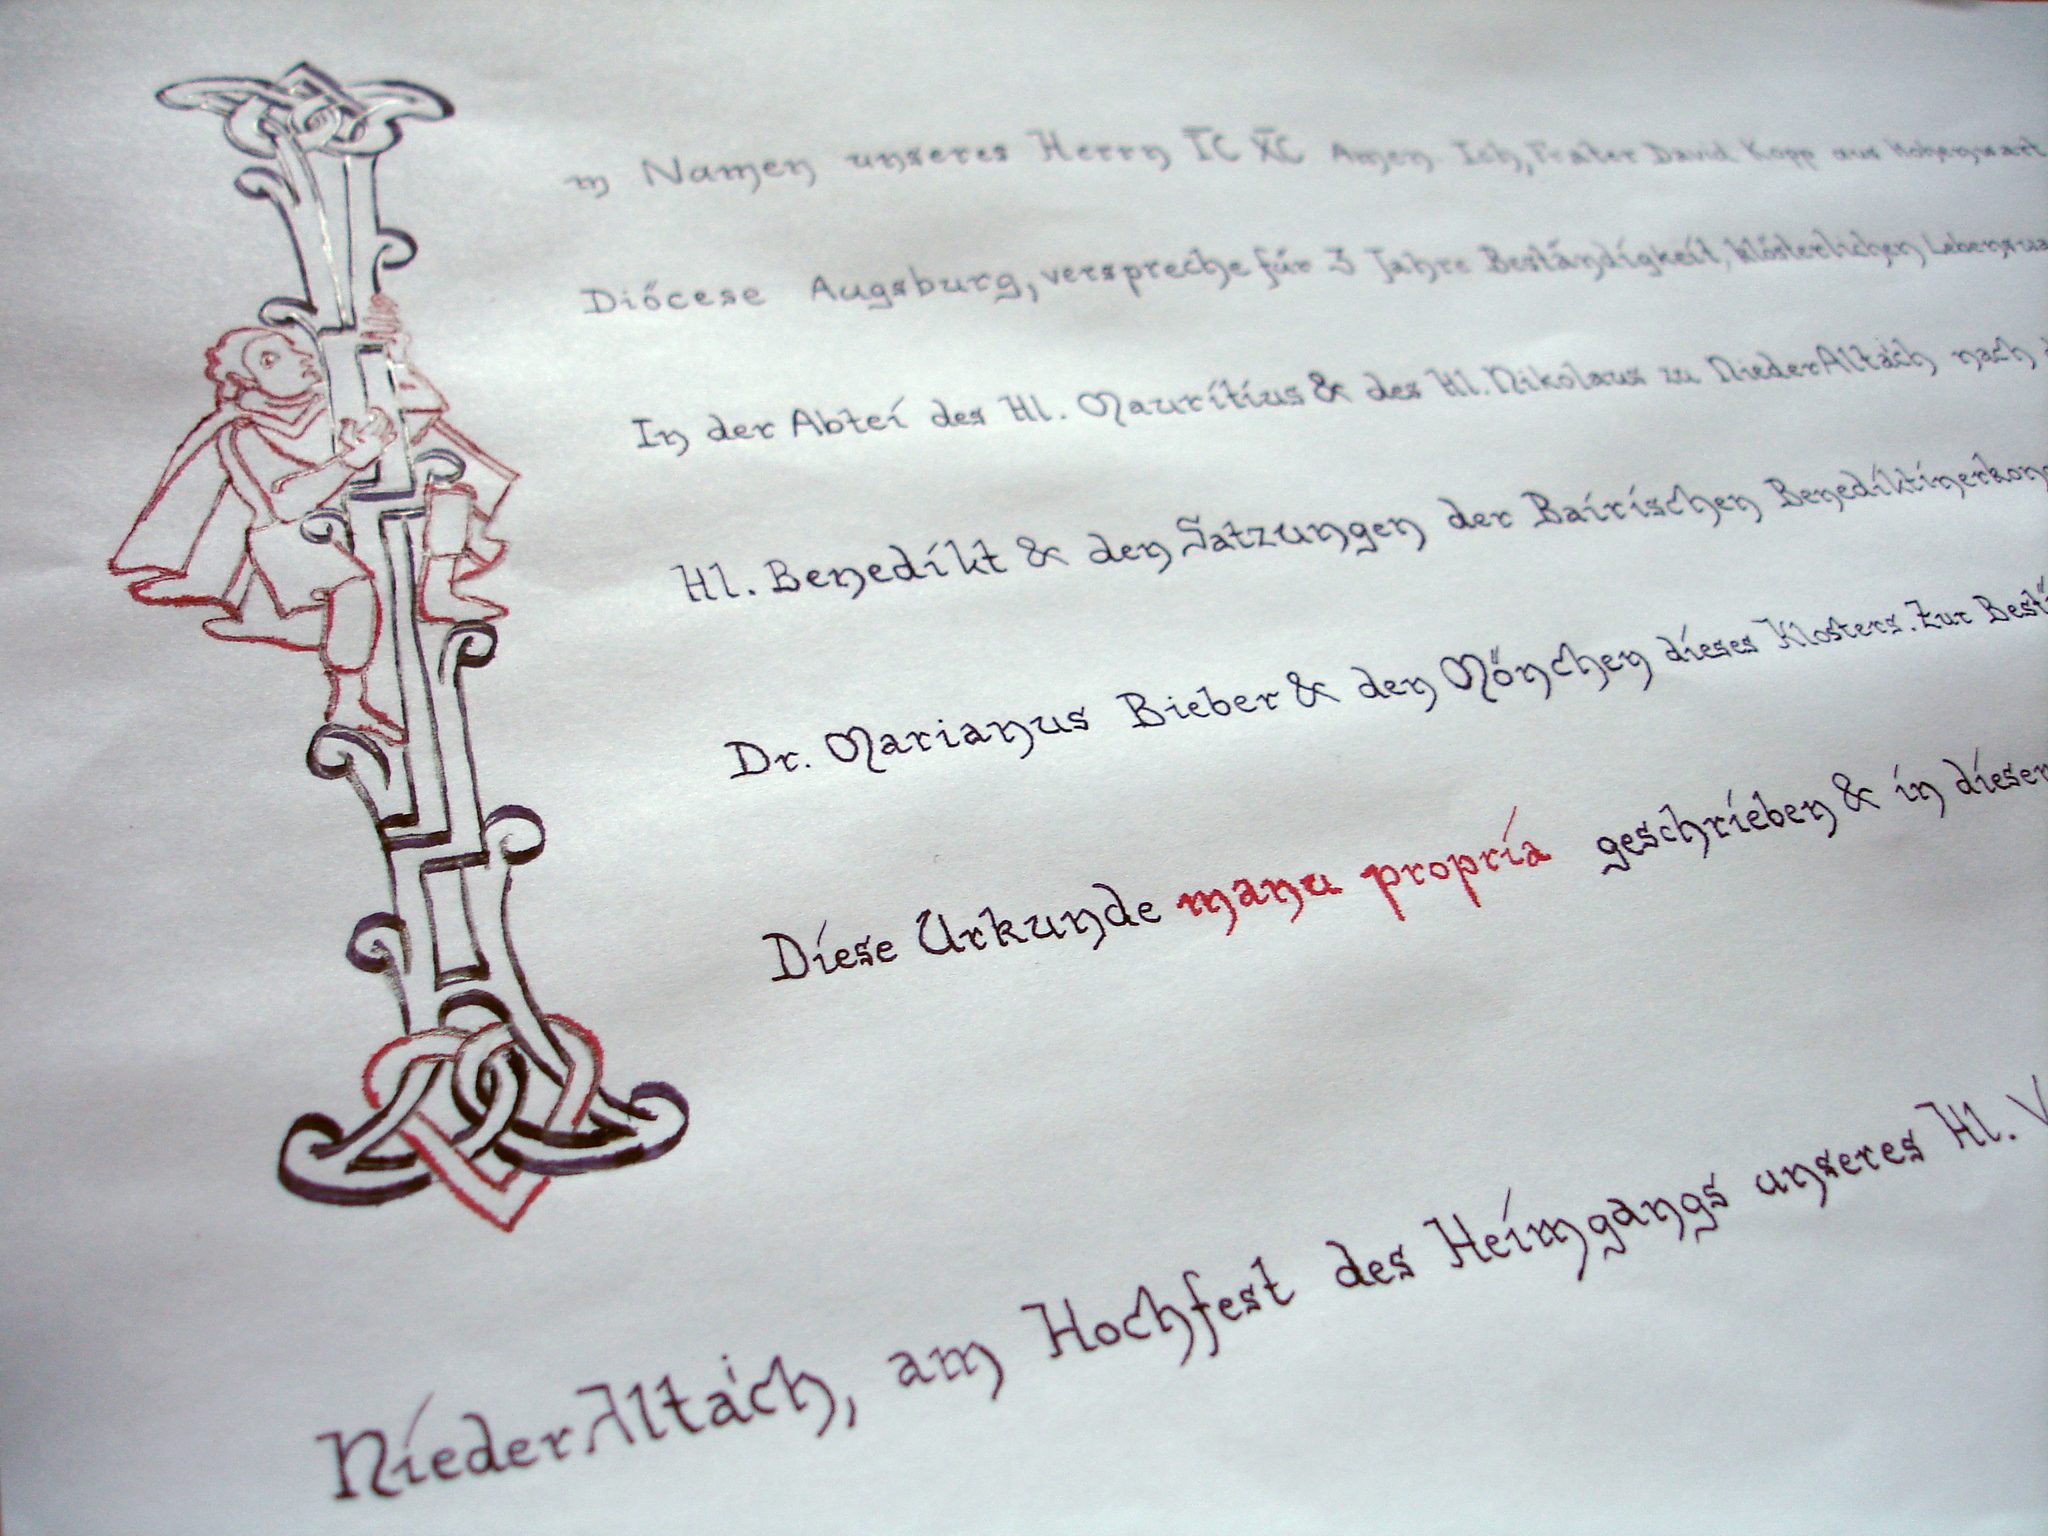 Im Namen unseres Herrn I̅C̅ X̅C̅ Amen. Ich, Frater David Kopp aus Hohenwart
Diócese Augsburg, verspreche für 3 Jahre Beständigkeit, klösterlichen
In der Abtei des Hl. Mauritius & des Hl. Nikolaus zu NiederAltaich nach
Hl. Benedikt & den Satzungen der Bairischen
Dr. Marianus Bieber & den Mönchen dieses Klosters. Zur
Diese Urkunde manu propria geschrieben & in dieser
NiederAltaich, am Hochfest des Heimgangs unseres Hl. V